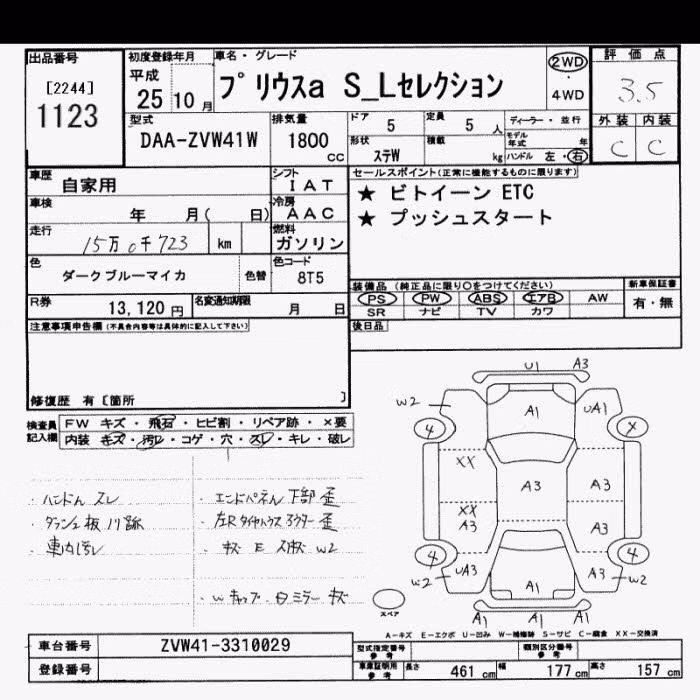 出品番号
[2244]
1123
初度登録年月
平成
25 10 月
車名・グレード
プリウスa S_Lセレクション
2WD
・
4WD
評価点
3.5
外装 内装
C C
型式
DAA-ZVW41W
排気量
1800
CC
ドア 5
定員 5 人
形状 ステW
積載 kg
ディーラー・並行
モデル年式 年
ハンドル 左・右
車歴
自家用
シフト
IAT
車検
年 月( 日)
冷房
AAC
走行
15万0千723 km
燃料
ガソリン
色
ダークブルーマイカ
色替
色コード
8T5
R券
13,120 円
名変通知期限
月 日
セールスポイント(正常に機能するものに限ります)
★ ビトイーン ETC
★ プッシュスタート
装備品 (純正品に限り○をつけてください)
新車保証書
PS PW ABS エアB AW
SR ナビ TV カワ
有・無
後日品
注意事項申告欄 (不具合内容等は具体的に記入して下さい)
修復歴 有 [箇所 ]
検査員
記入欄
FW キズ・飛石・ヒビ割・リペア跡・×要
内装 キズ・汚レ・コゲ・穴・スレ・キレ・破レ
・ハンドル スレ
・ダッシュ板 川跡
・車内汚レ
・エンドパネル 下部 歪
・左Rタイヤハウス アウター 歪
・キズ E スリキズ W2
・Wキャップ・白ミラー キズ
U1 A3
W2
A1
UA1
4
X
XX
A3
A3
XX
A3
A3
4
4
W2
UA3
A1
A3
W2
A1 A1 A1
スペア
A-キズ E-エクボ U-凹み W-補修跡 S-サビ C-腐食 XX-交換済
車台番号
ZVW41-3310029
登録番号
型式指定番号
参考
類別区分番号
参考
車庫証明用
参考
長さ 461 cm
幅 177 cm
高さ 157 cm